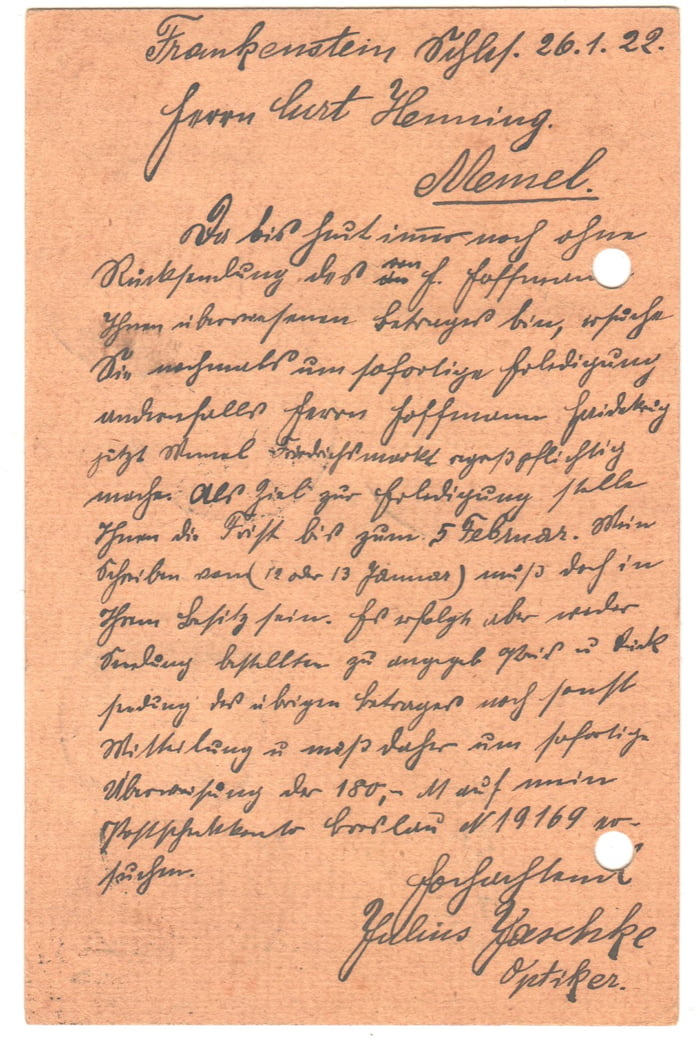 Frankenstein Schles. 26.1.22.
Herrn Curt Henning.
Memel.
Da bis heut immer noch ohne
Rücksendung des von H. Hoffmann
Ihnen überwiesenen Betrages bin, ersuche
Sie nochmals um sofortige Erledigung
andernfalls Herrn Hoffmann Heidekrug
jetzt Memel Friedrichsmarkt regeßpflichtig
mache. Als Ziel zur Erledigung stelle
Ihnen die Frist bis zum 5 Februar. Mein
Schreiben vom (12 oder 13 Januar) muß doch in
Ihrem Besitz sein. Es erfolgt aber weder
Sendung bestellten zu angegeb Preis u Rück
sendung des übrigen Betrages noch sonst
Mitteilung u muß daher um sofortige
Überweisung der 180,- M auf mein
Postscheckkonto Breslau N 19169 er-
suchen.
Hochachtend
Julius Jaschke
Optiker.